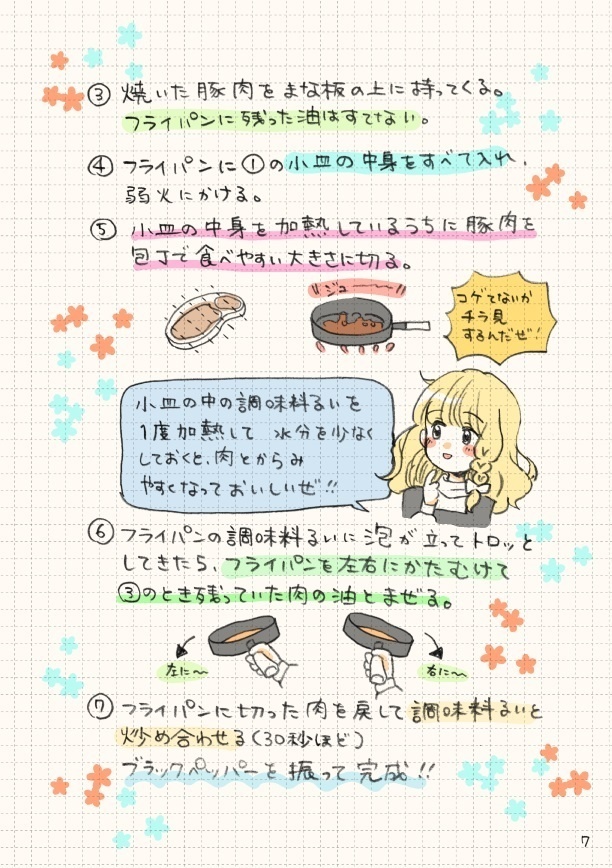 ③ 焼いた豚肉をまな板の上に持ってくる。
フライパンに残った油はすてない。
④ フライパンに①の小皿の中身をすべて入れ、
弱火にかける。
⑤ 小皿の中身を加熱しているうちに豚肉を
包丁で食べやすい大きさに切る。
ジューーー!!
コゲてないか
チラ見
するんだぜ!
小皿の中の調味料るいを
1度加熱して 水分を少なく
しておくと、肉とからみ
やすくなっておいしいぜ!!
⑥ フライパンの調味料るいに泡が立ってトロッと
してきたら、フライパンを左右にかたむけて
③のとき残っていた肉の油とまぜる。
左に〜
右に〜
⑦ フライパンに切った肉を戻して調味料るいと
炒め合わせる(30秒ほど)
ブラックペッパーを振って完成!!
7